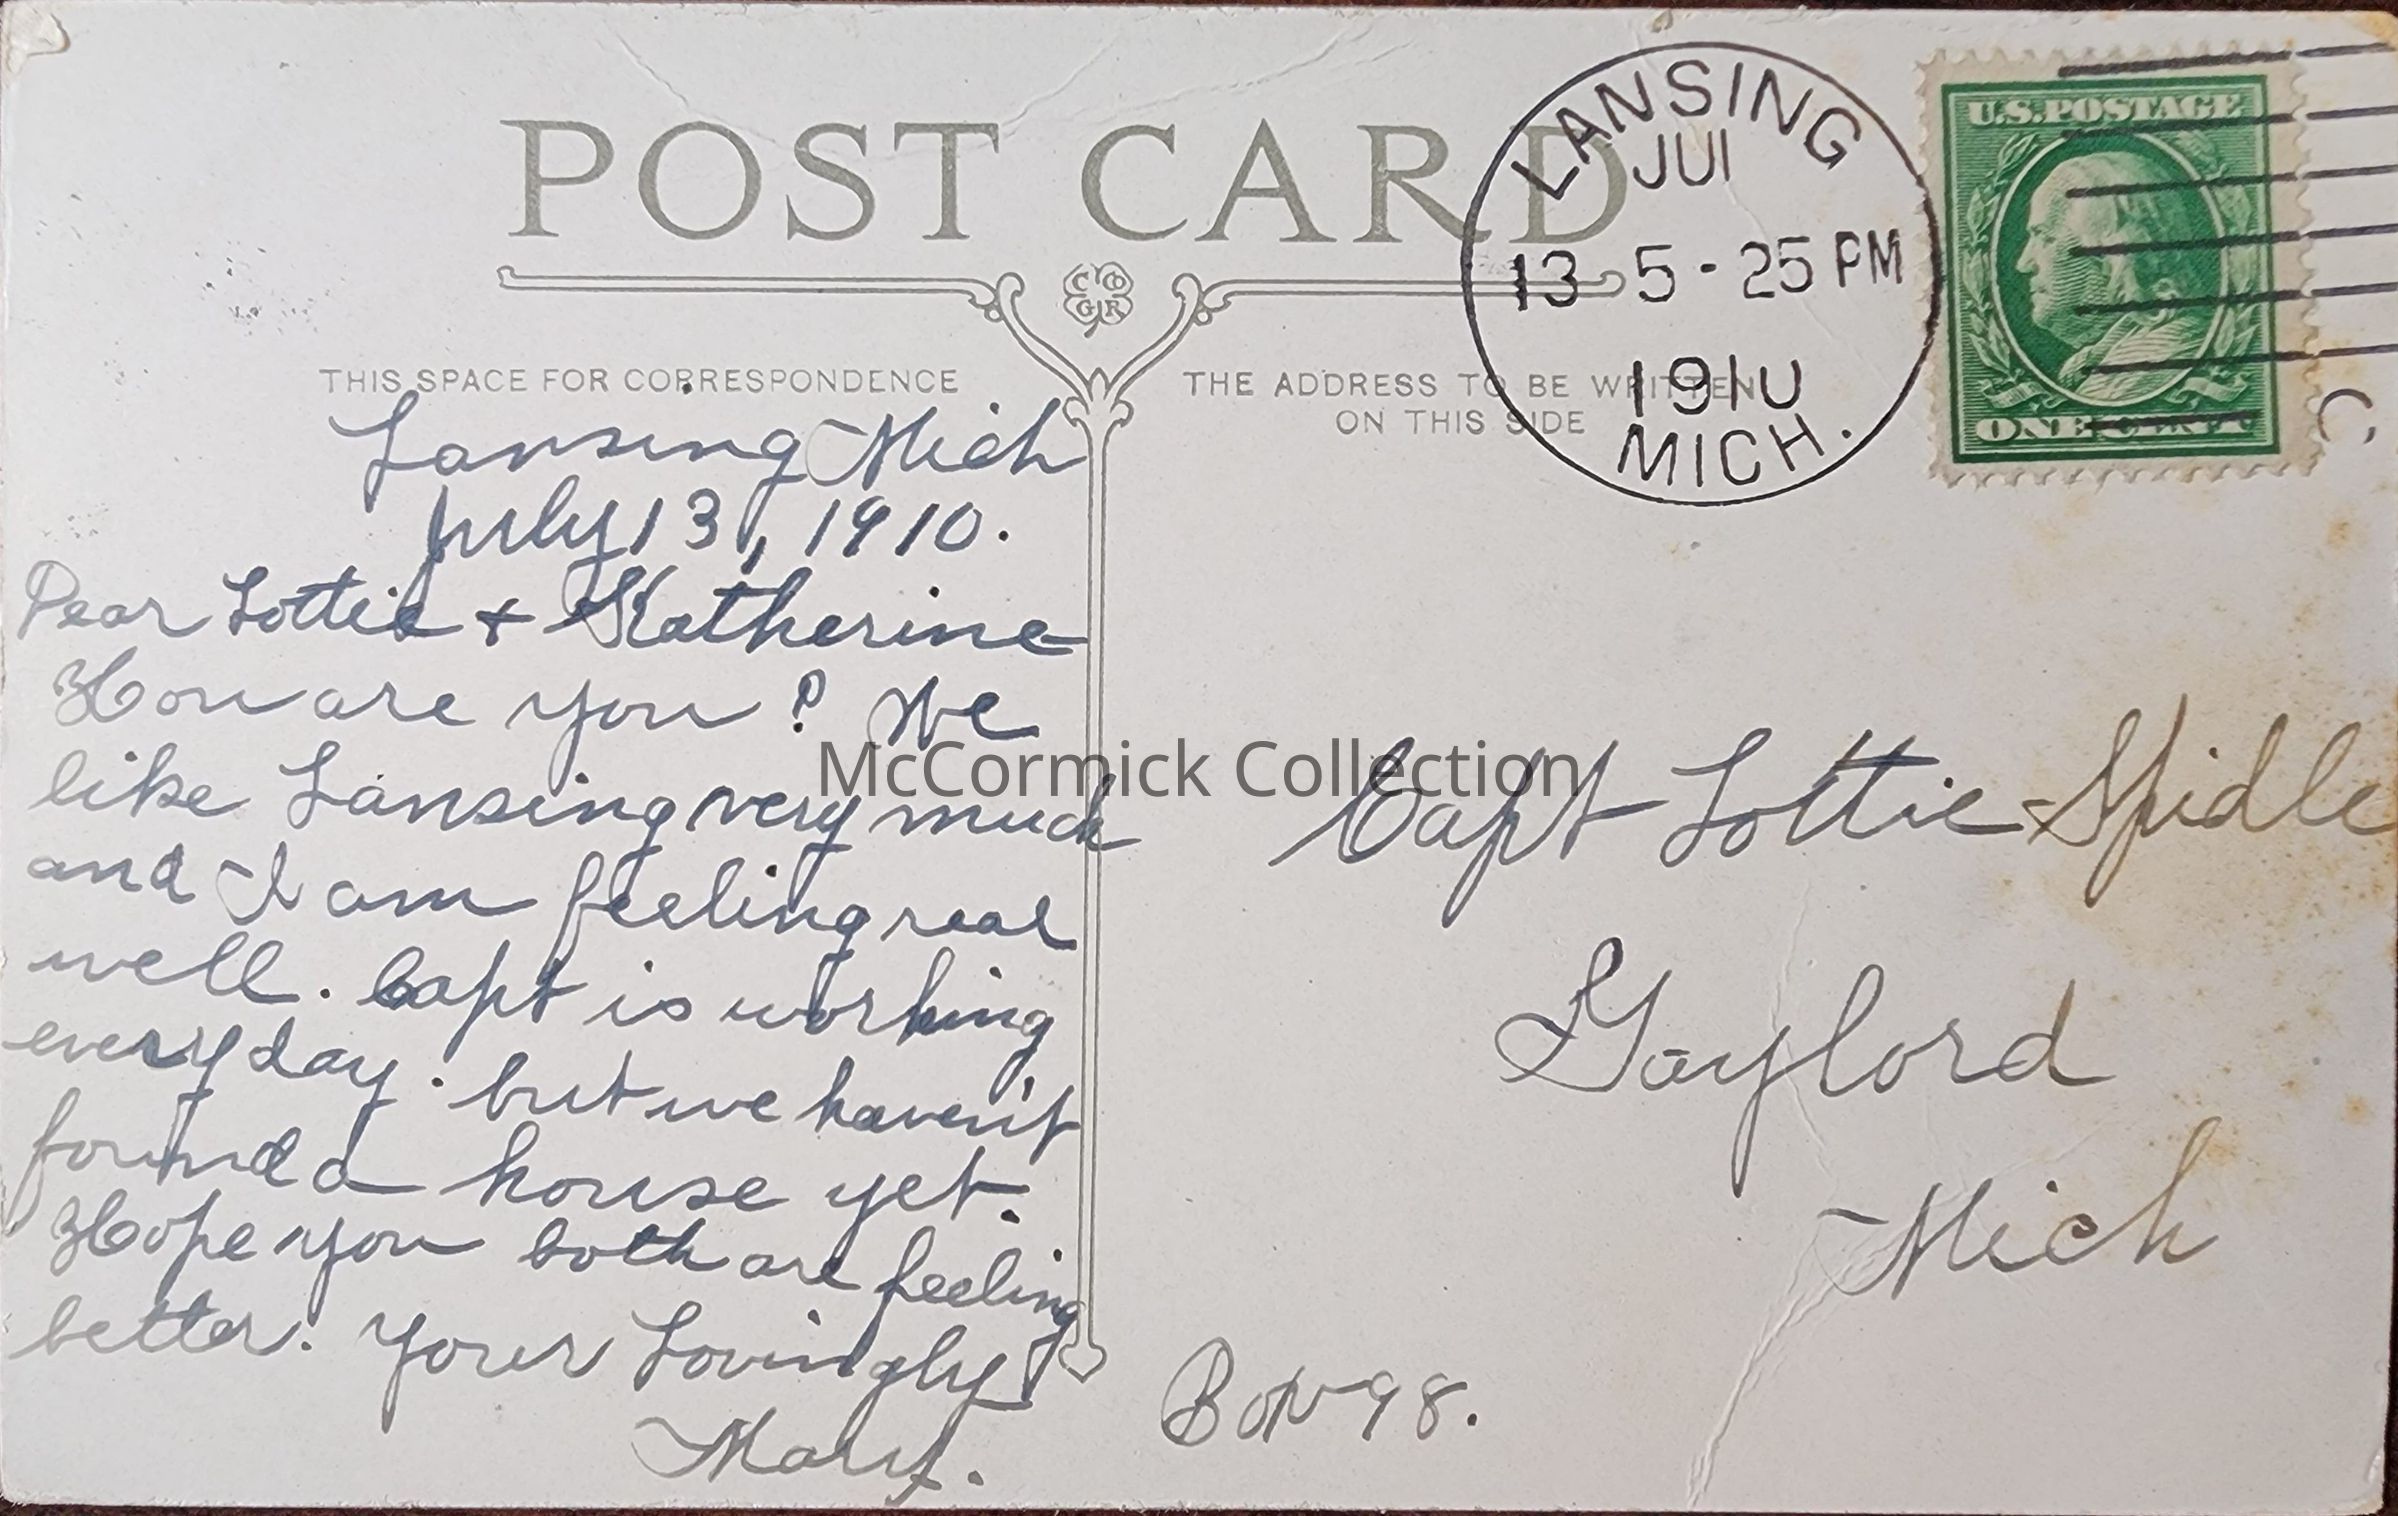 POST CARD
LANSING
JUL
13 5-25 PM
1910
MICH.
U.S. POSTAGE
ONE CENT
C
CO
GR
THIS SPACE FOR CORRESPONDENCE
THE ADDRESS TO BE WRITTEN
ON THIS SIDE
Lansing Mich
July 13, 1910.
Dear Lottie + Katherine
How are you? We
like Lansing very much
and I am feeling real
well. Capt is working
every day. but we haven't
found a house yet.
Hope you both are feeling
better. Your Lovingly
Mary.
McCormick Collection
Capt Lottie Spidle
Gaylord
Mich
Box 98.